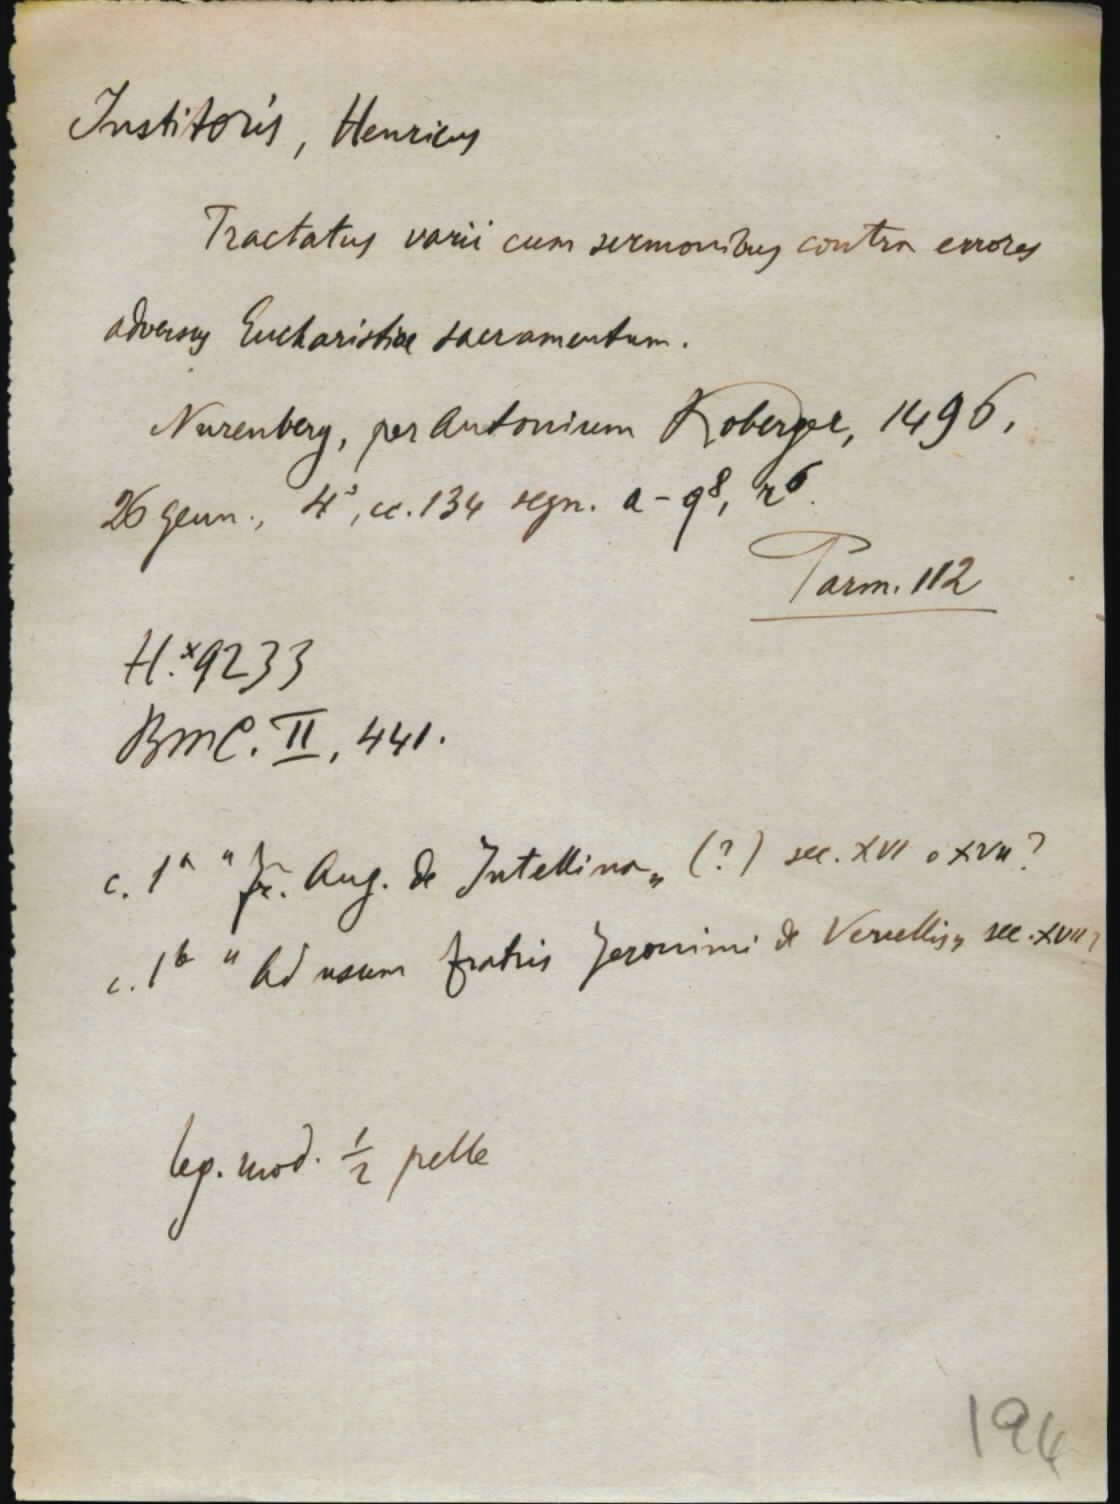 Institoris, Henricus
Tractatus varii cum sermonibus contra errores
adversus Eucharistiae sacramentum.
Nurenberg, per Antonium Koberger, 1496,
26 genn., 4°, cc. 134 segn. a-q⁸, r⁶.
Parm. 112
H.ˣ9233
BMC. II, 441.
c. 1ª "Fr. Aug. de Intellina" (?) sec. XVI o XVII?
c. 1ᵇ "Ad usum fratris Jeronimi de Vercellis" sec. XVII?
leg. mod. ½ pelle
194